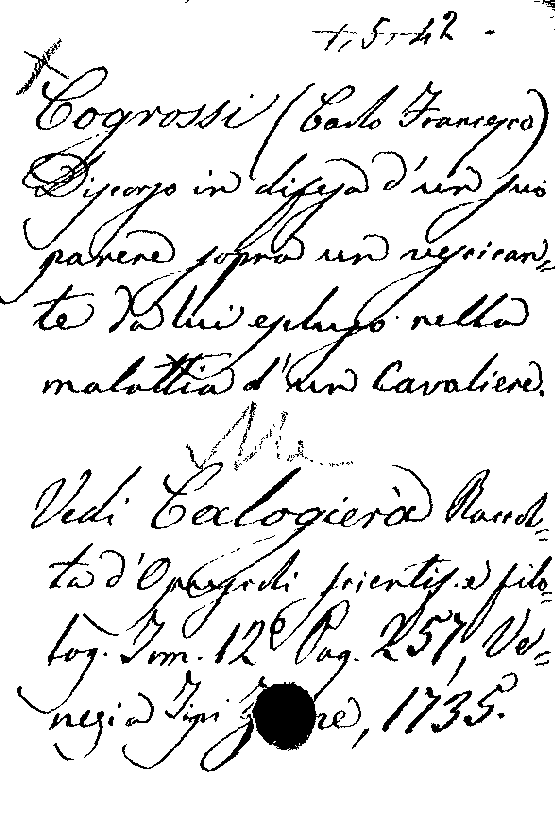 +, 5, 42.
Cogrossi (Carlo Francesco)
Discorso in difesa d'un suo
parere sopra un vescican=
te da lui escluso nella
malattia d'un Cavaliere.
Vedi Calogierà Raccol=
ta d'Opuscoli scientif. e filo=
log. Tom. 12º Pag. 257, Ve=
nezia Tipi ne, 1735.